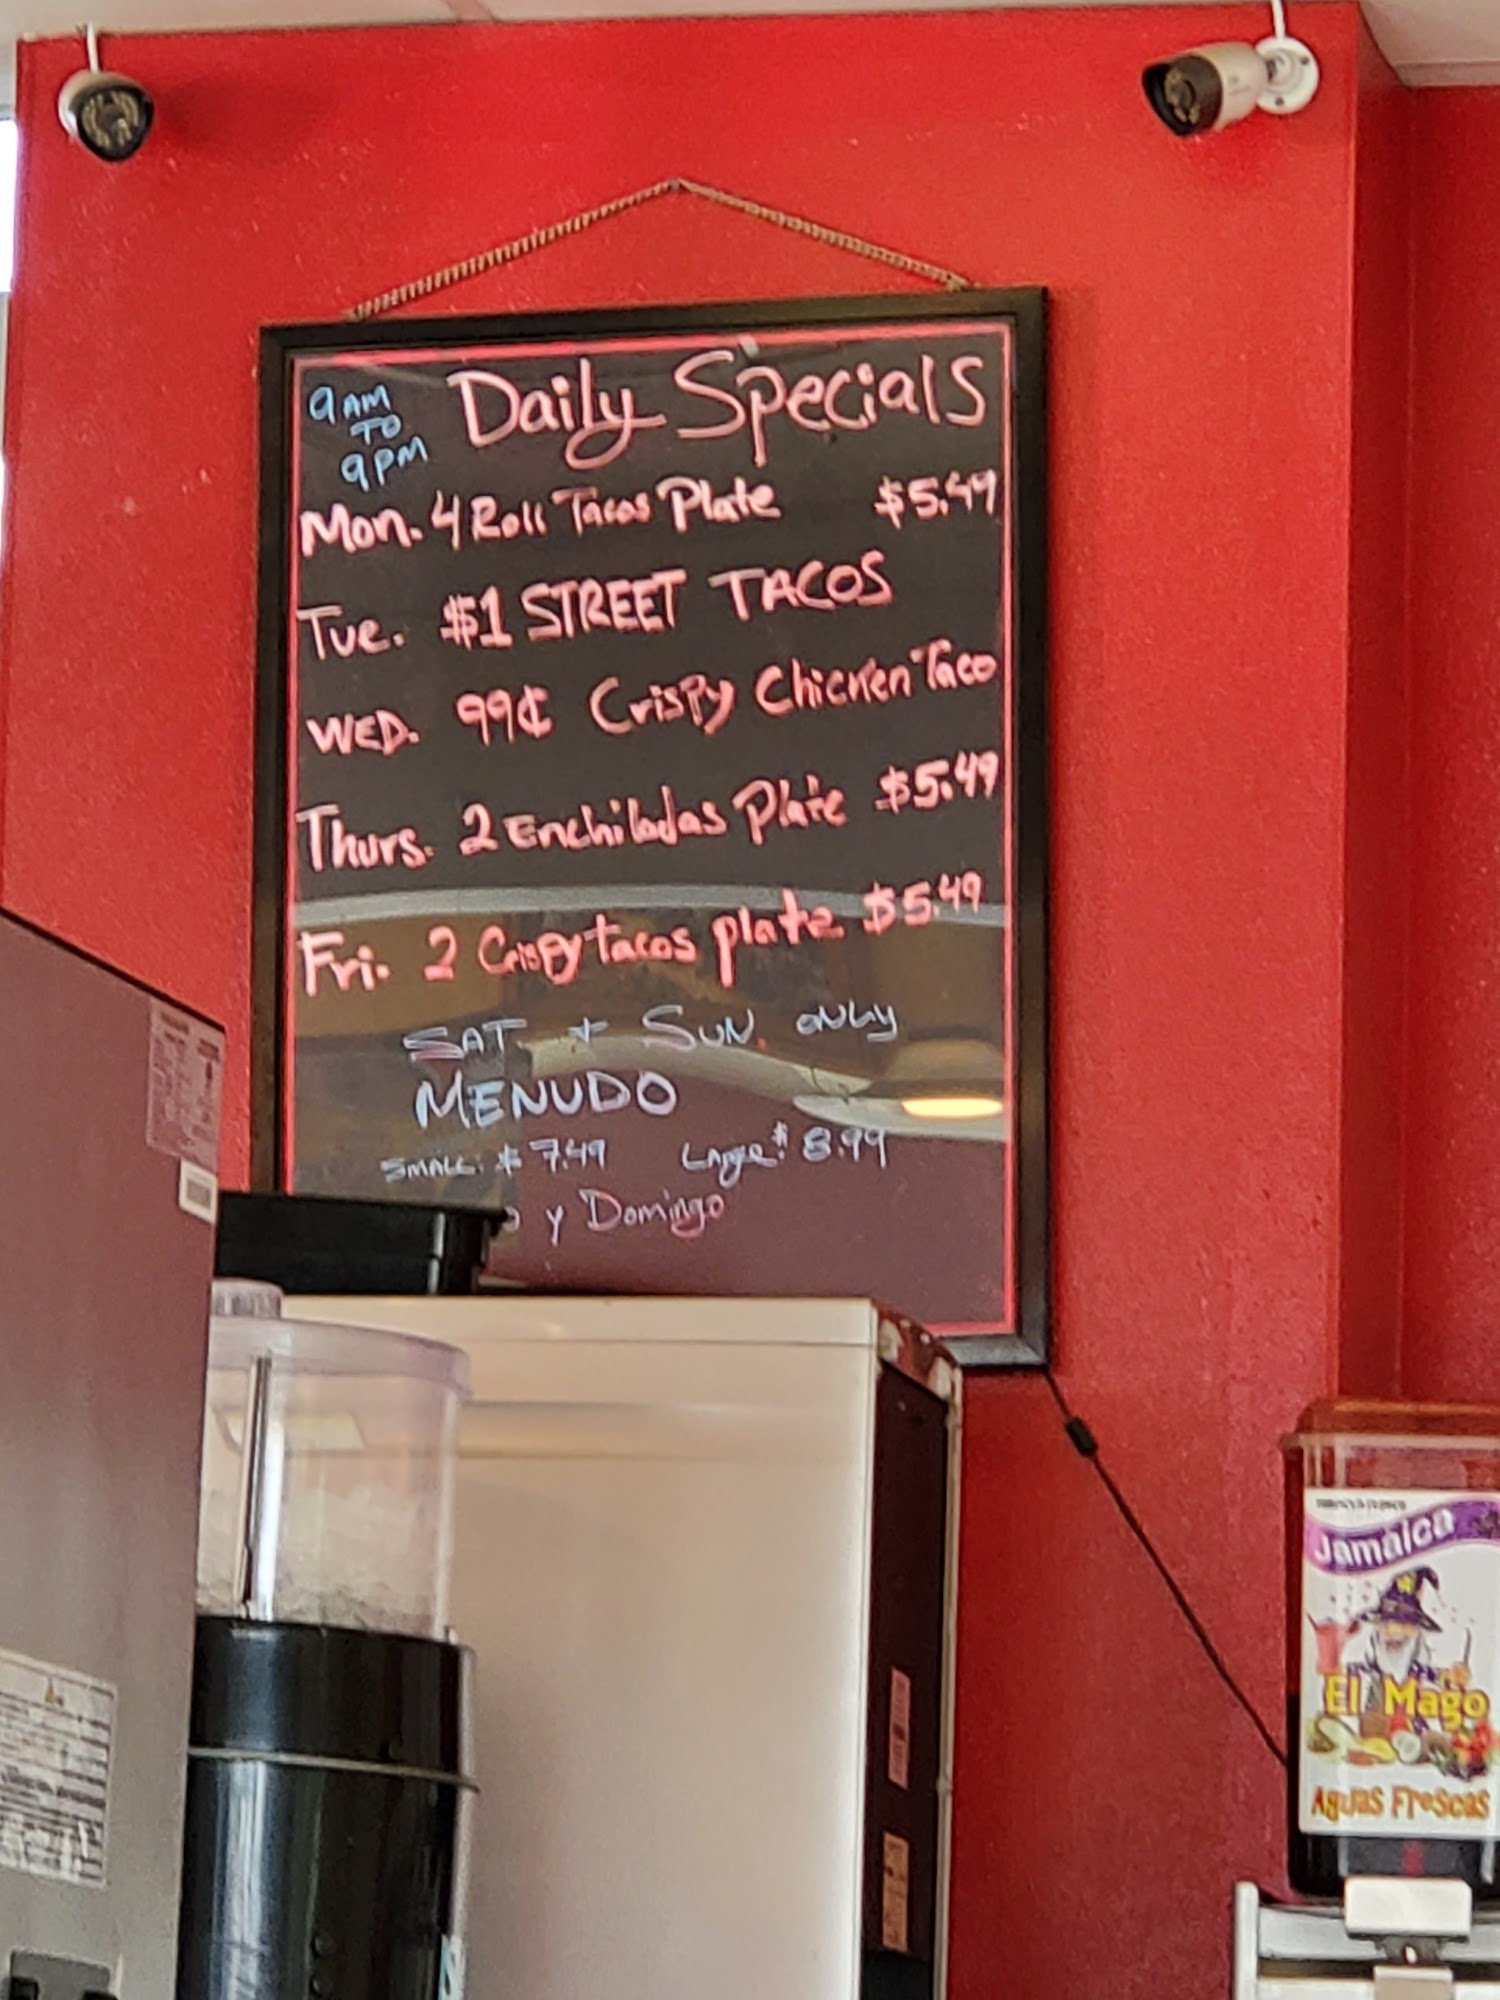 9AM
TO
9PM
Daily Specials
Mon. 4 Roll Tacos Plate $5.49
Tue. $1 STREET TACOS
WED. 99¢ Crispy Chicken Taco
Thurs. 2 Enchiladas Plate $5.49
Fri. 2 Crispy tacos plate $5.49
SAT. + SUN. ONLY
MENUDO
SMALL: $7.49 Large: $8.99
y Domingo
Jamaica
El Mago
Aguas Frescas